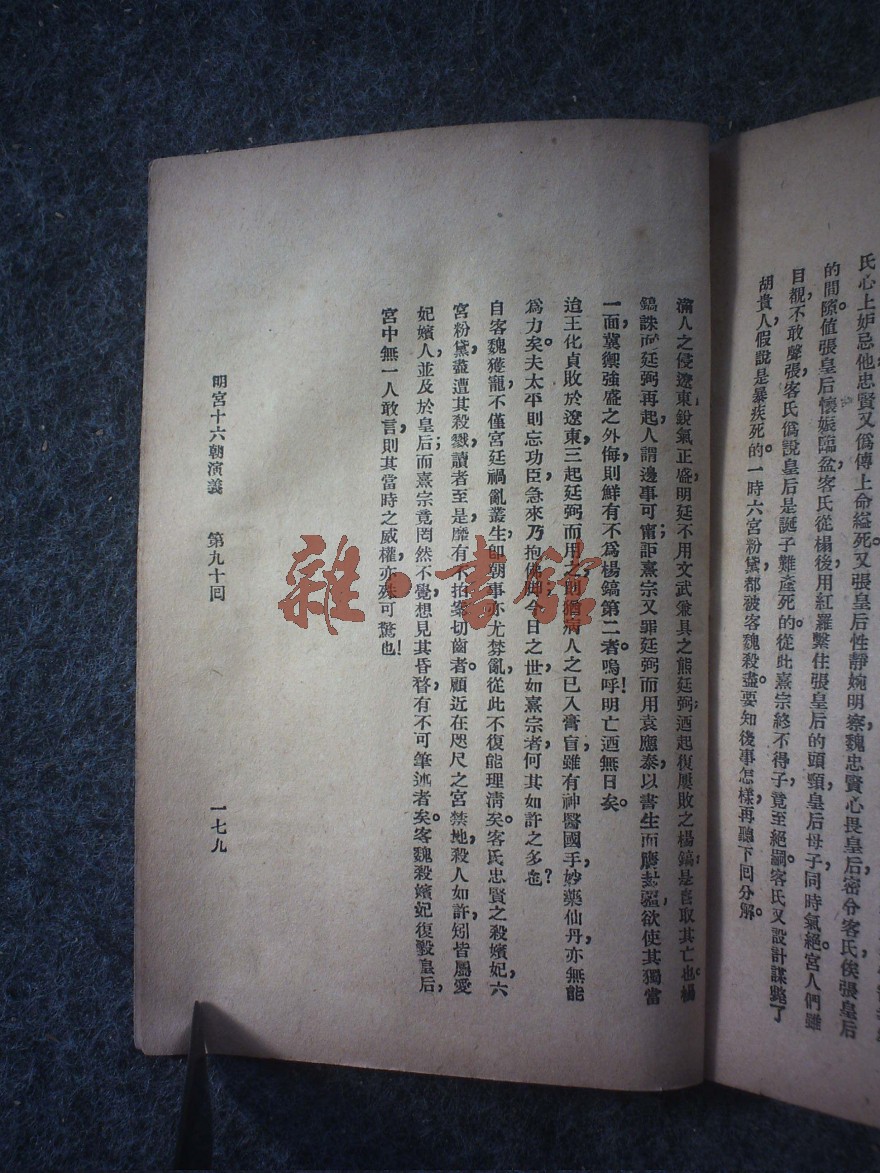 氏心上妒忌他忠賢又爲傳上命縊死又張皇后性靜婉明察魏忠賢心畏皇后密令客氏俟張皇后
的間隙。值張皇后懷娠臨盆客氏從楊後用紅羅繫住張皇后的頭頸皇后母子同時氣絕宮人們雖
目覩不敢聲張客氏僞說皇后是誕子難產死的。從此熹宗終不得子竟至絕嗣。客氏又設計謀斃了
胡貴人假說是暴疾死的。一時六宮粉黛都被客魏殺盡。要知後事怎樣再聽下回分解。
滿人之侵遼東銳氣正盛明廷不用文武兼具之熊廷弼迺起復屢敗之楊鎬是自取其亡也。楊
鎬誅而廷弼再起人謂邊事可甯詎熹宗又罪廷弼而用袁應泰以書生而膺封疆欲使其獨當
一面冀禦強盛之外侮則鮮有不爲楊鎬第二者。嗚呼!明亡迺無日矣。
迨王化貞敗於遼東三起廷弼而用之則猶病人之已入膏盲雖有神醫國手妙藥仙丹亦無能
爲力矣。夫太平則忘功臣急來乃抱佛脚今日之世如熹宗者何其如許之多也?
自客魏獲寵不僅宮廷禍亂叢生卽朝事亦尤棼亂從此不復能理清矣。客氏忠賢之殺嬪妃六
宮粉黛盡遭其殺戮讀者至是靡有不拍案切齒者。顧近在咫尺之宮禁地殺人如許矧皆屬愛
妃嬪人並及於皇后而熹宗竟罔然不覺想見其昏瞀有不可筆述者矣。客魏殺嬪妃復毀皇后
宮中無一人敢言則其當時之威權亦殊可驚也!
明宮十六朝演義 第九十回 一七九
雜·書館